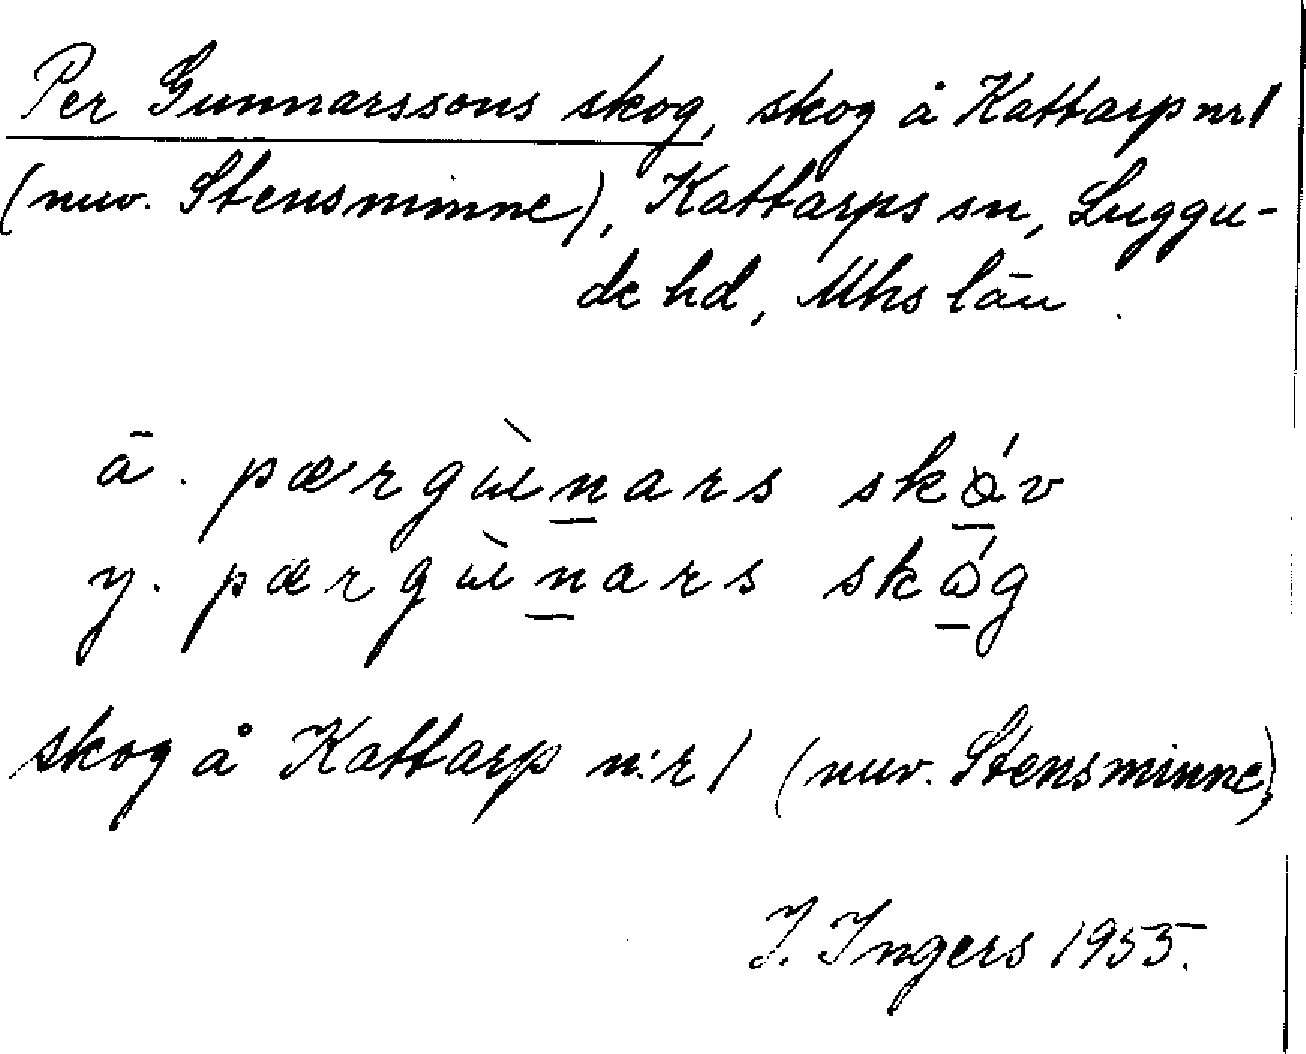 Per Gunnarssons skog, skog å Kattarp nr 1
(nuv. Stensminne), Kattarps sn, Luggu-
de hd, Mhs län
ä. pærgùnars skåv
y. pærgùnars skóg
skog å Kattarp n:r 1 (nuv. Stensminne)
I. Ingers 1955.